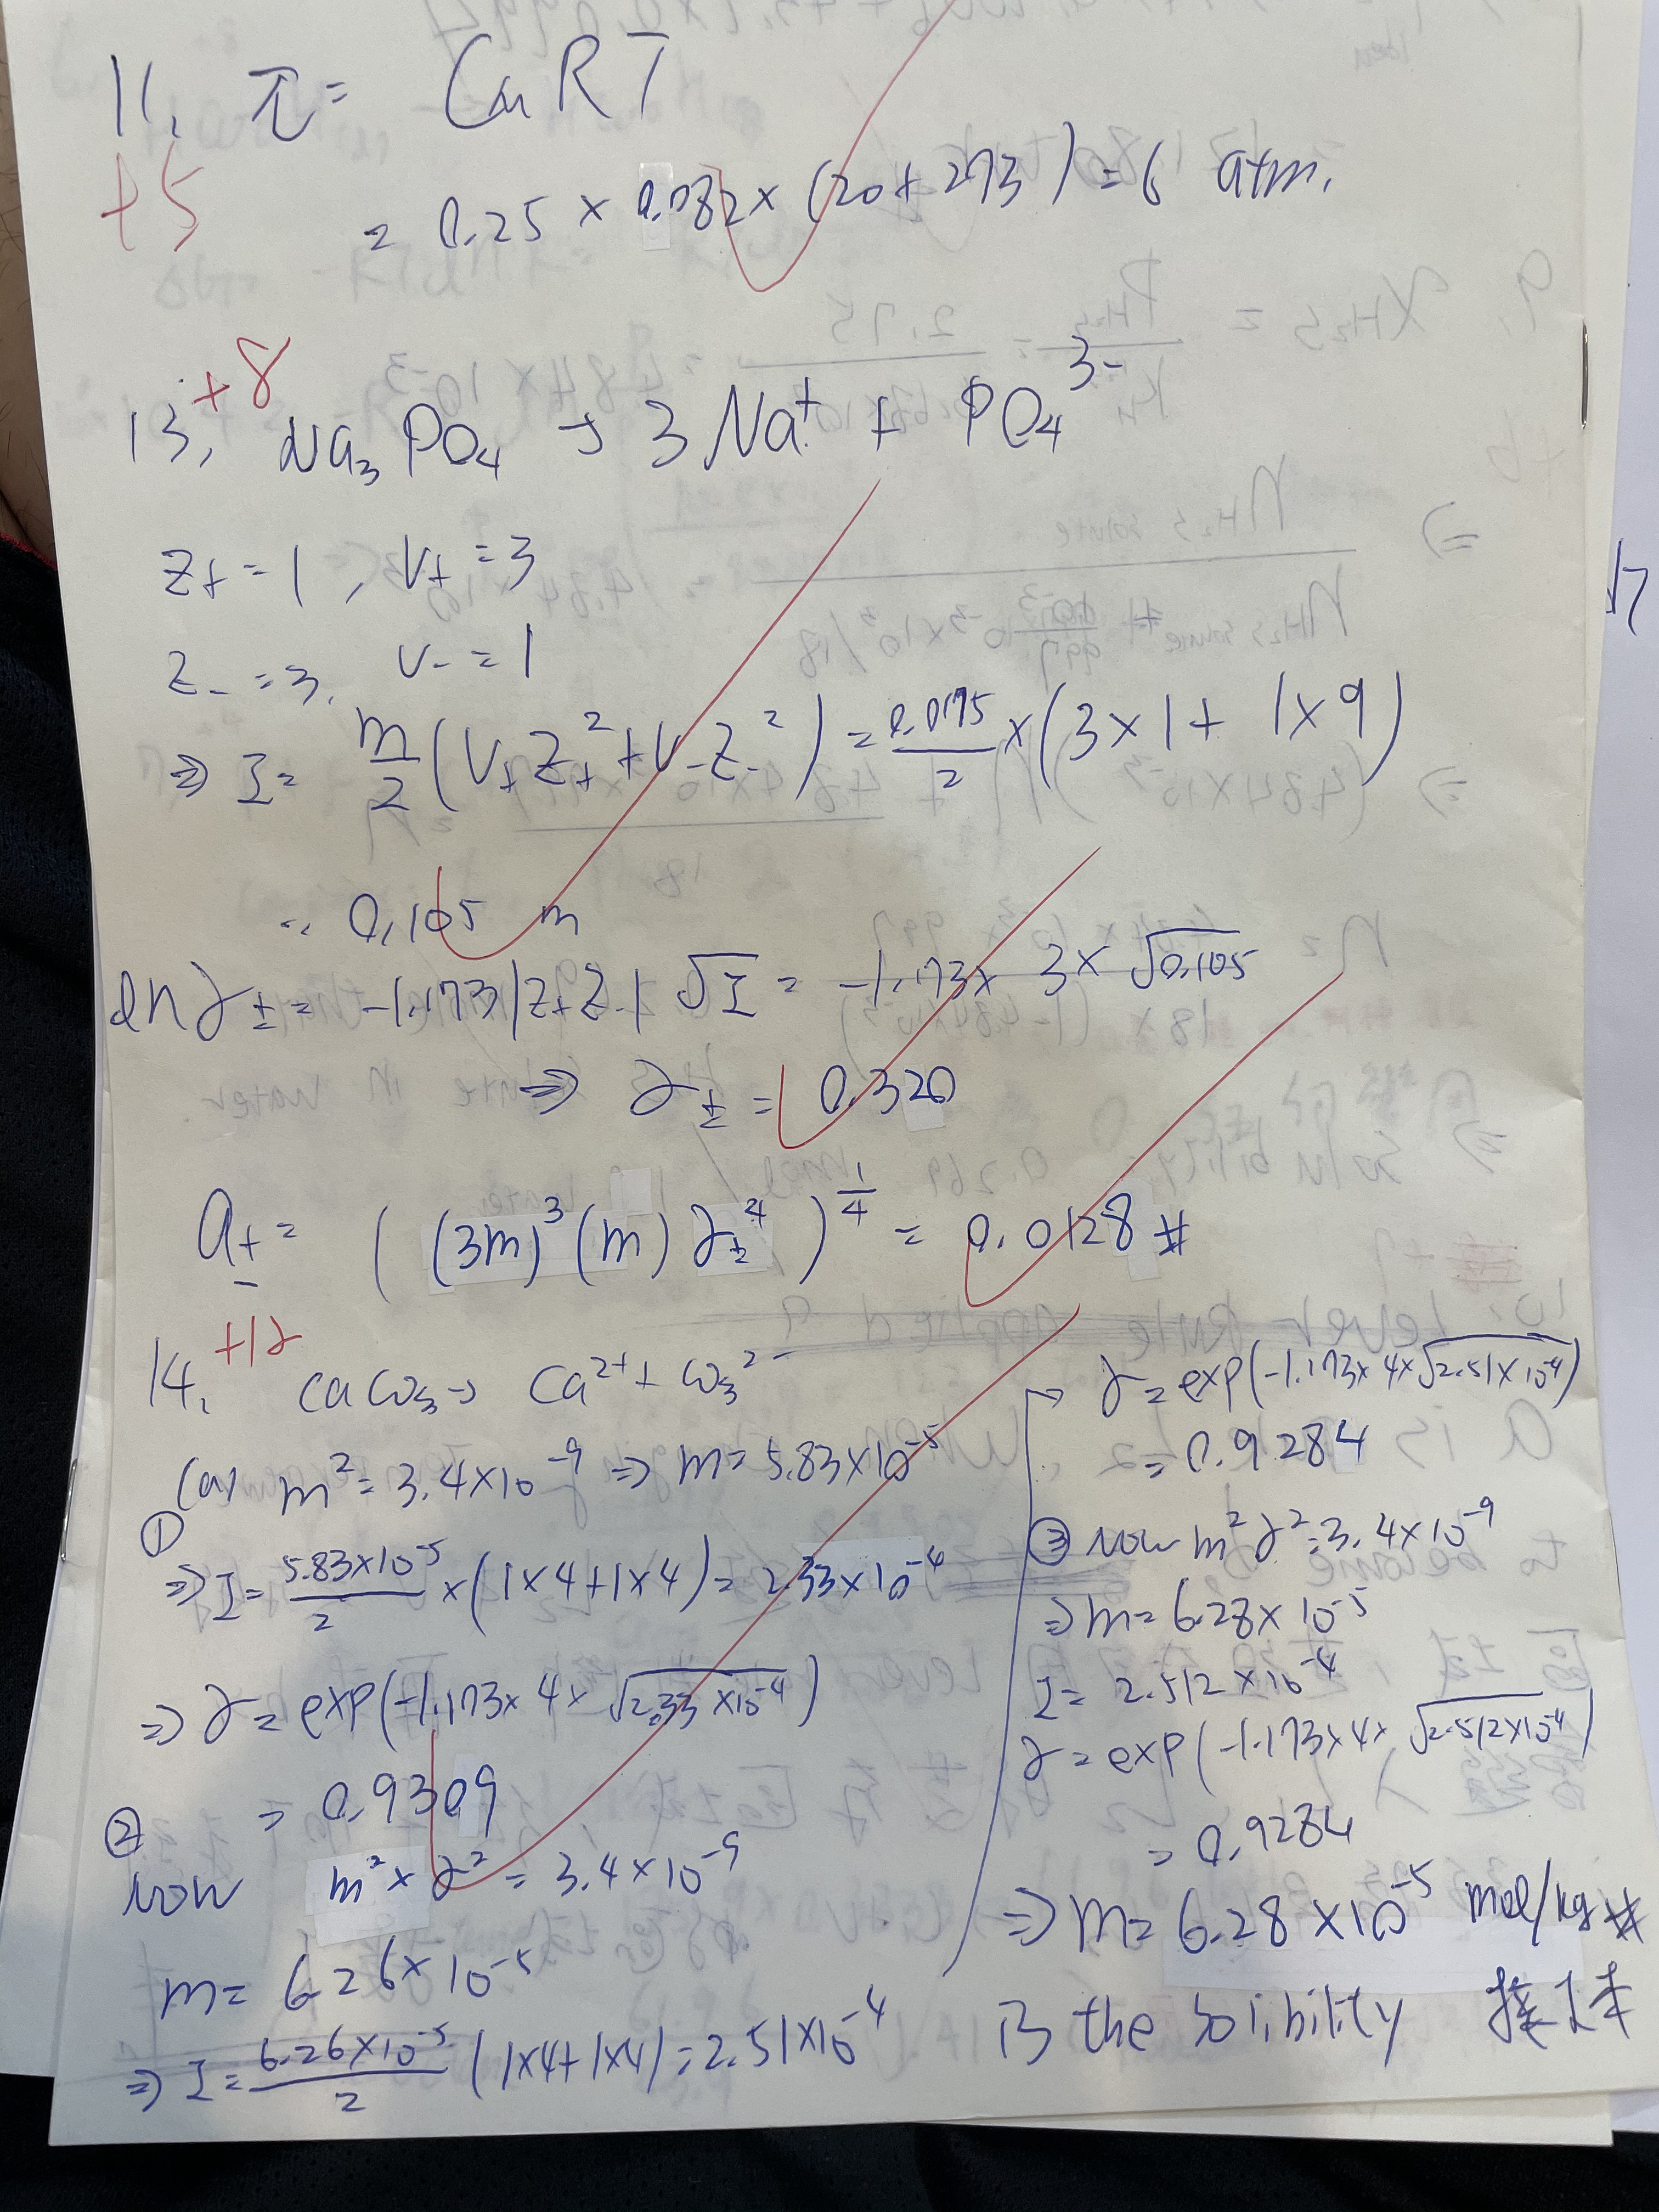 11. π = CuRT
+5
= 0.25 × 0.082 × (20+273) = 6 atm.
+8
13. Na₃PO₄ → 3Na⁺ + PO₄³⁻
Z₊ = 1, V₊ = 3
Z₋ = 3. V₋ = 1
⇒ I = m/2 (V₊Z₊² + V₋Z₋²) = 0.0175/2 × (3×1 + 1×9)
= 0.105 m
ln γ± = -1.173|Z₊Z₋|√I = -1.173 × 3 × √0.105
⇒ γ± = 0.320
a± = ((3m)³(m)γ±⁴)^(1/4) = 0.0128 #
+12
14. CaCO₃ → Ca²⁺ + CO₃²⁻
(a) m² = 3.4×10⁻⁹ ⇒ m = 5.83×10⁻⁵
①
⇒ I = 5.83×10⁻⁵/2 × (1×4+1×4) = 2.33×10⁻⁴
⇒ γ = exp(-1.173×4×√2.33×10⁻⁴)
= 0.9309
②
Now m²×γ² = 3.4×10⁻⁹
m = 6.26×10⁻⁵
⇒ I = 6.26×10⁻⁵/2 (1×4+1×4) = 2.51×10⁻⁴
→ γ = exp(-1.173×4×√2.51×10⁻⁴)
= 0.9284
③ Now m²γ² = 3.4×10⁻⁹
⇒ m = 6.28×10⁻⁵
I = 2.512×10⁻⁴
γ = exp(-1.173×4×√2.512×10⁻⁴)
= 0.9284
⇒ m = 6.28×10⁻⁵ mol/kg #
is the solibility
17